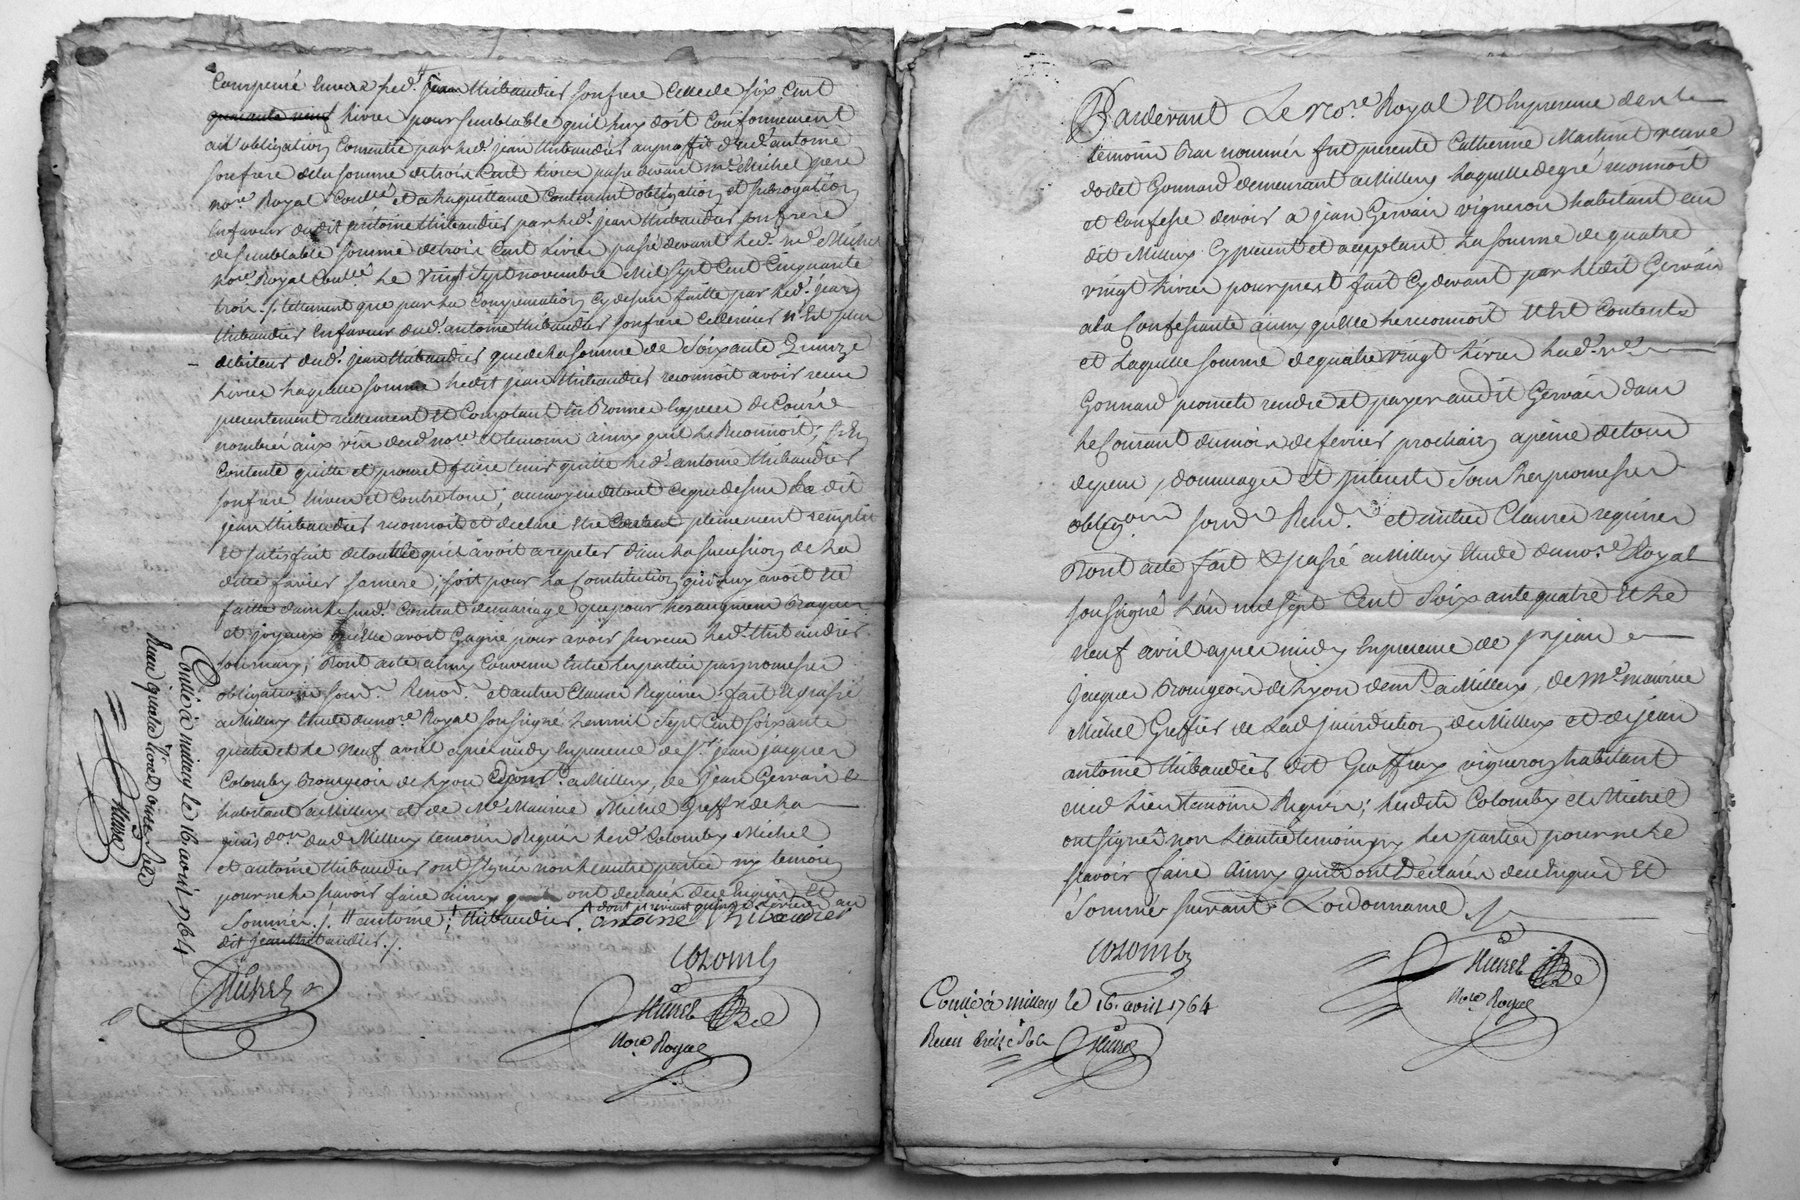 Compensé envers led.t Jean thibaudier son frere Celle de six Cent
quarante neuf livres pour semblable quil luy doit Conformement
a l'obligation Consentie par led.t jean thibaudier au profit dud.t antoine
son frere de la somme de trois Cent livres passé devant m.e Michel pere
no.re Royal et a la quittance Contenant obligation et subrogation
en faveur dudit antoine thibaudier par led.t jean thibaudier son frere
de semblable somme de trois Cent livres passé devant led.t m.e Michel
no.re Royal le vingt sept novembre mil sept Cent Cinquante
trois ./. tellement que par la Compensation cy dessus faitte par led.t jean
thibaudier en faveur dud.t antoine thibaudier son frere Ce dernier n'est plus
debiteur dud.t jean thibaudier que de la somme de soixante quinze
livres laquelle somme ledit jean thibaudier reconnoit avoir receu
presentement reellement et Comptant en Bonnes especes de Cours
nombrée aux vües dud.t no.re et temoins ainsy quil le Reconnoit, s'en
Contente quitte et promet faire tenir quitte led.t antoine thibaudier
son frere envers et Contre tous; au moyen de tout ce que dessus Le dit
jean thibaudier reconnoit et declare etre Content pleinement remply
et satisfait de tout ce quil avoit a repeter dans la succession de la
ditte favier sa mere; soit pour la Constitution qui luy avoit été
faitte dans le sud.t Contrat de mariage que pour les augment Bagues
et joyaux quelle avoit Gagné pour avoir survecu led.t thibaudier
son mary; Dont acte ainsy Convenu entre les parties par promesses
obligations soum.ns Renon.ns et autres Clauses Requises fait et passé
a Millery etude du no.re Royal soussigné l'an mil sept Cent soixante
quatre et le neuf avril après midy en presence de s.r jean jacques
Colomby Bourgeois de Lyon dem.t a Millery, de jean Gervais
habitant a Millery et de M.e Maurice Michel Greff.r de la
jurisd.on dud. Millery temoins Requis led.t Colomby Michel
et antoine thibaudier ont signés non les autres parties ny temoins
pour ne le sçavoir faire ainsy quils ont declarés de ce Enquis et
Sommés ./. antoine ; thibaudier. antoine thibaudier
dit jean thibaudier ./.
Colomby
Michel
Michel
No.re Royal
Controllé à millery le 16 avril 1764
Michel
Pardevant Le No.re Royal et en presence des
temoins Bas nommés fut presente Catherine Martinet veuve
Gonnard demeurant a Millery laquelle de gré reconnoit
et Confesse devoir a jean Gervais vigneron habitant au
dit Millery cy present et acceptant la somme de quatre
vingt livres pour prest fait cy devant par ledit Gervais
a la Confessante ainsy quelle le reconnoit et s'en Contente
et Laquelle somme de quatre vingt livres lad.te v.e
Gonnard promets rendre et payer audit Gervais dans
le Courant du mois de fevrier prochain a peine de tous
depens, dommages et interets sous les promesses
oblig.ons soum.ns Renon.ns et autres Clauses requises
Dont acte fait et passé a Millery etude du no.re Royal
soussigné L'an mil sept Cent soixante quatre et le
neuf avril apres midy en presence de s.r jean
jacques Bourgeois de Lyon dem.t a Millery, de m.e maurice
Michel Greffier de Lad. jurisdiction de Millery et de jean
antoine thibaudier dit Graffery vigneron habitant
aud. Lieu temoins Requis; lesdits Colomby et Michel
ont signés non l'autre temoin ny les parties pour ne le
sçavoir faire ainsy quils ont Declarés de ce Enquis et
Sommés suivant Lordonnance ./.
Colomby
Michel
No.re Royal
Con.llé à millery le 16. avril 1764
Receu treize sols
Michel